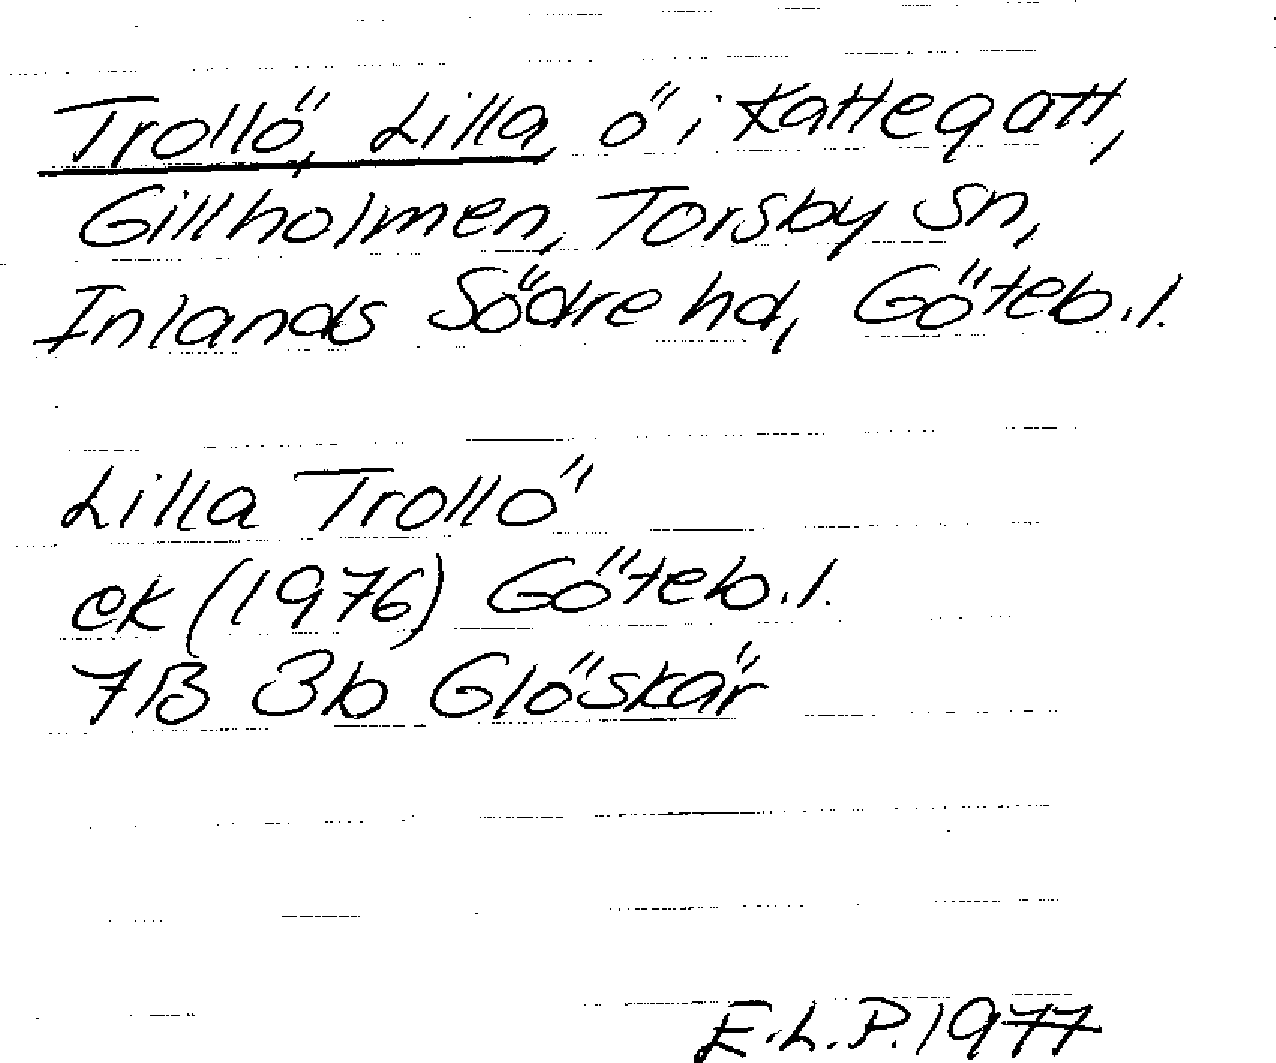 Trollö, Lilla, ö i Kattegatt,
Gillholmen, Torsby sn,
Inlands Södre hd, Göteb.l.
Lilla Trollö
ek (1976) Göteb.l.
7B 3b Glöskär
E.L.P. 1977